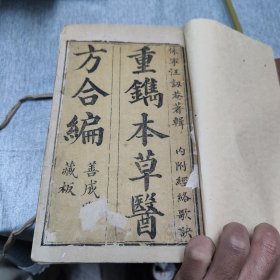 休寧汪訒菴著輯
內附經絡歌訣
重鐫本草醫
方合編
善成
藏板